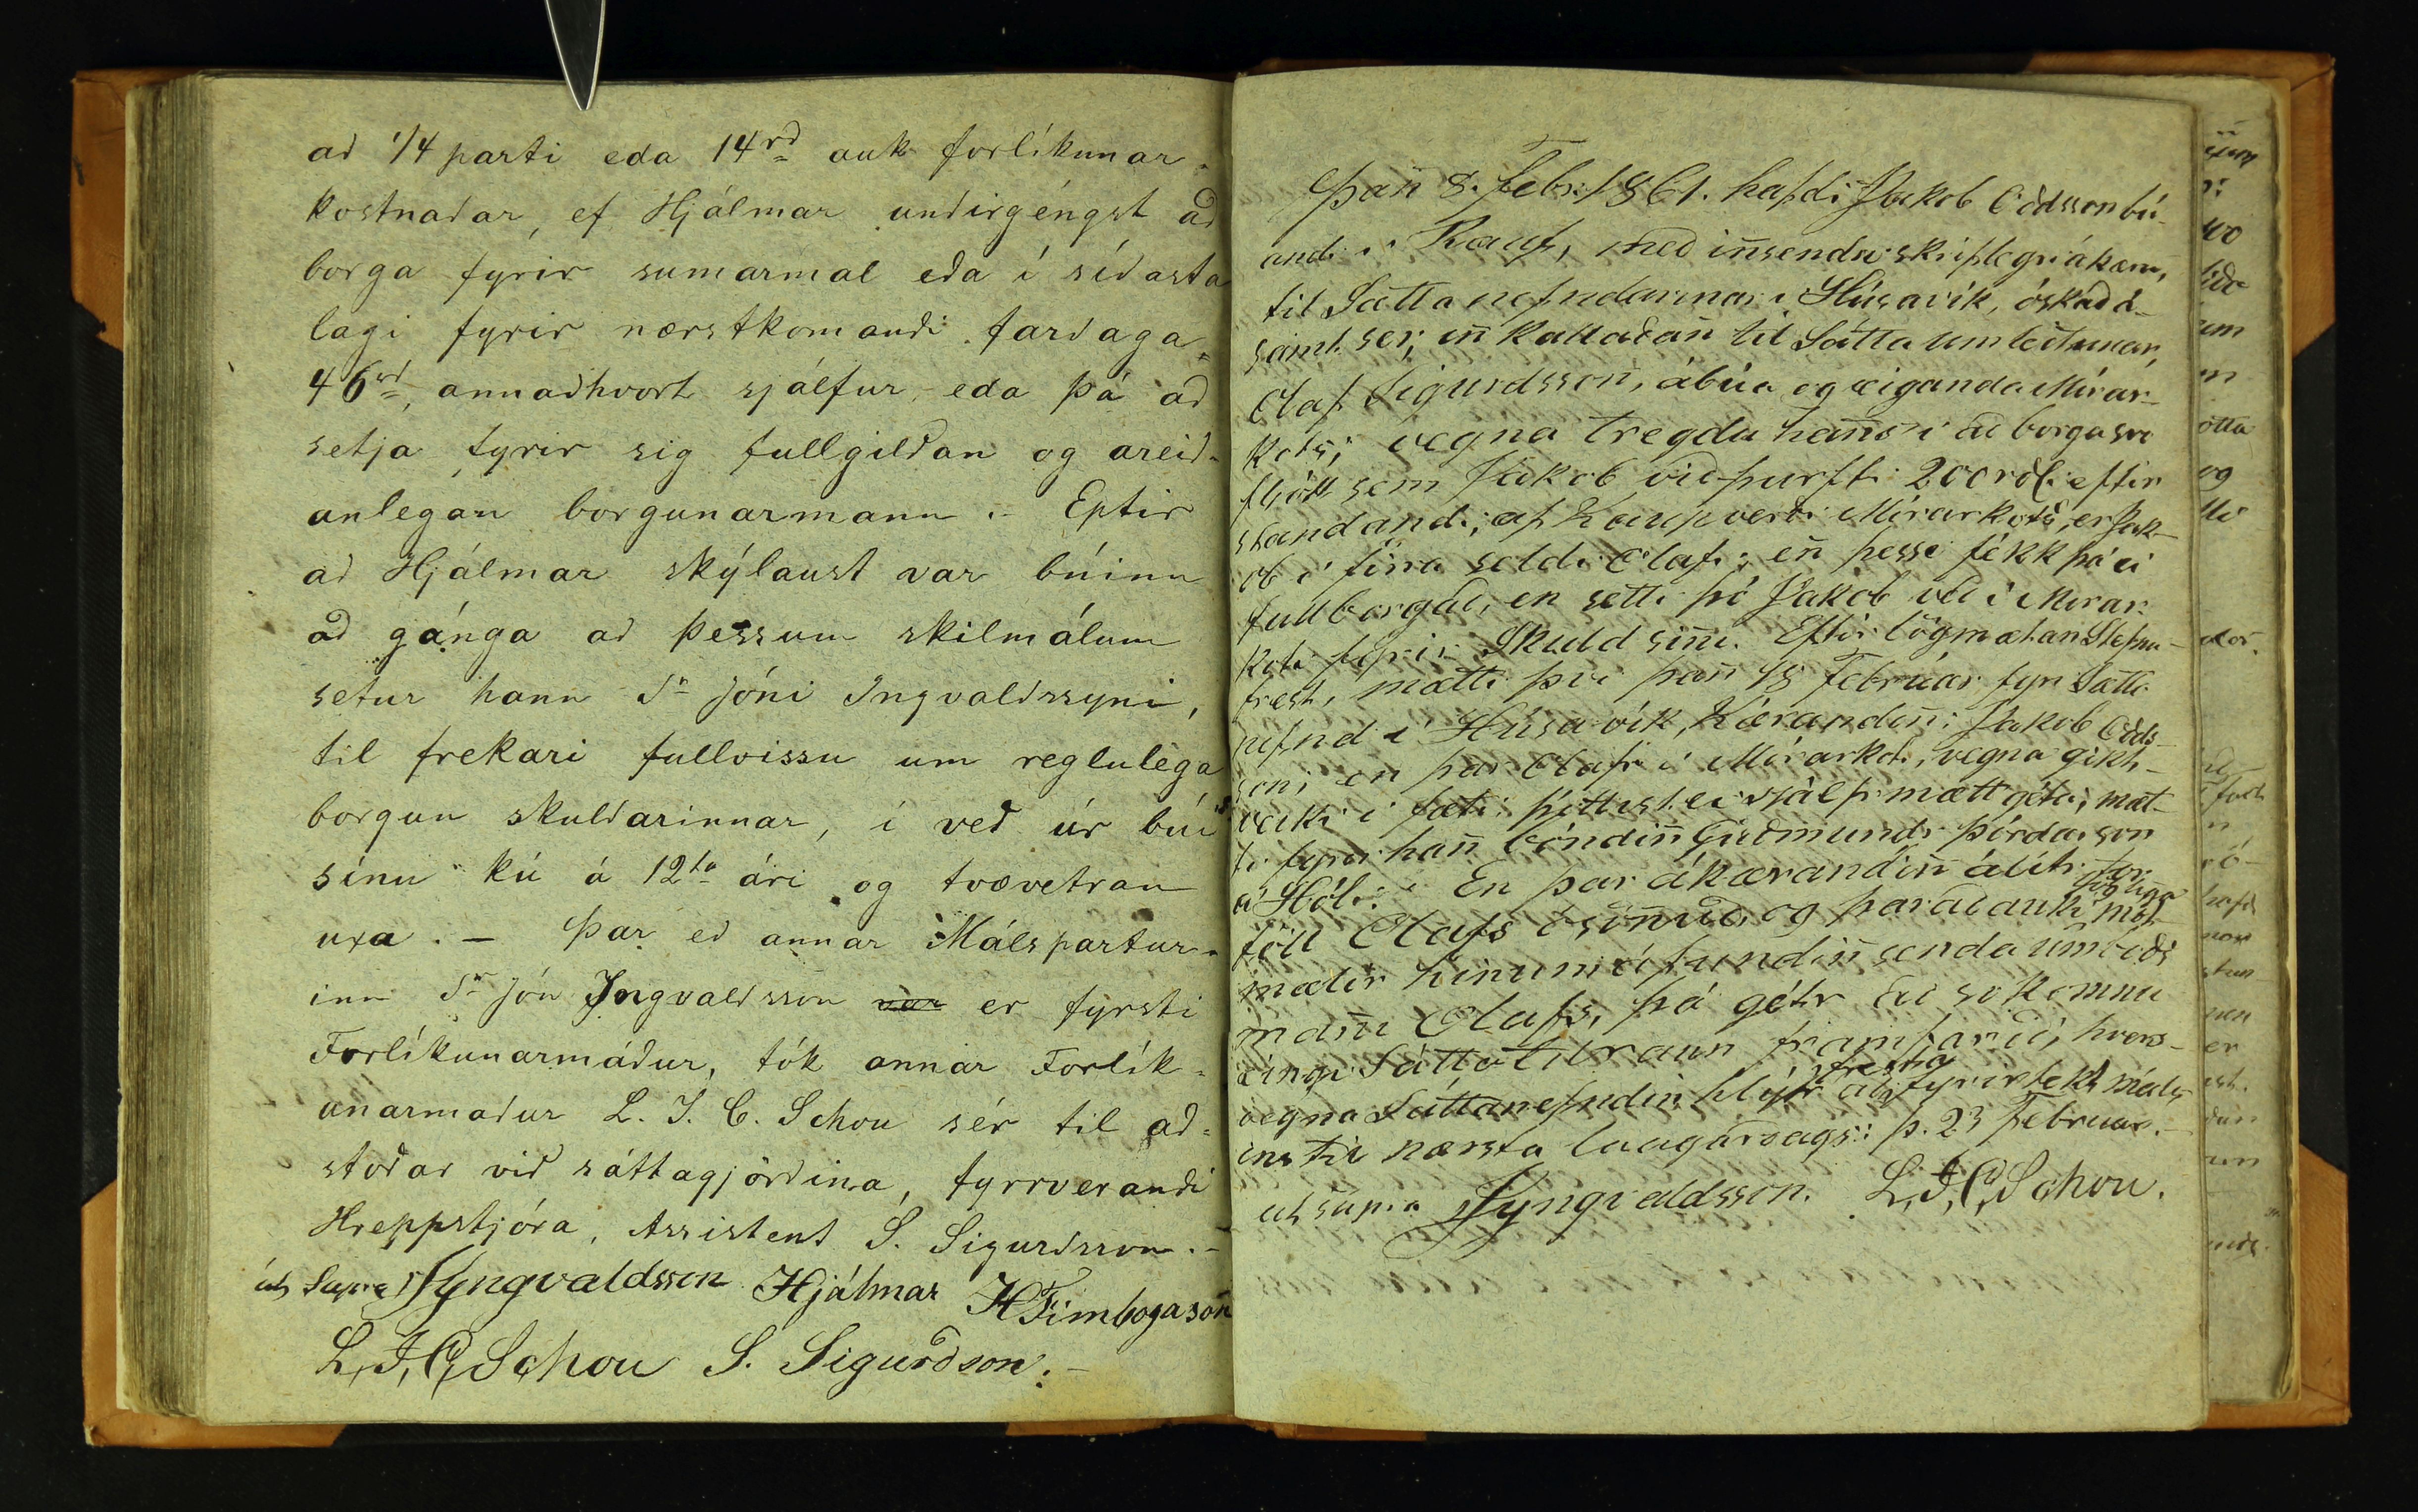 ad 1/4 parti eda 14rd auk forlíkunar-
kostnadar, ef Hjálmar undirgéngst að
borga fyrir sumarmal eða í síðasta
lagi fyrir nærstkomandi fardaga
46rd, annaðhvort sjálfur eda þá að
setja fyrir sig fullgildan og areid-
anlegan borgunarmann.- Eptir
ad Hjálmar skýlaust var búinn
að gánga ad þessum skilmálum
setur hann Sr Jóni Ingvaldssyni,
til frekari fullvissu um reglulega
borgun skuldarinnar, í veð úr búi
sínu kú á 12ta ári og tvævetran
uxa.- Þar ed annar Málspartur-
inn Sr Jón Ingvaldsson var er fyrsti
Forlíkunarmáður, tók annar Forlík-
unarmadur L. J. C. Schou sér til ad-
stoðar við sáttagjörðina, fyrrverandi
Hreppstjóra, Assistent S. Sigurdsson.-
út Supra JYngvaldsson Hjálmar HFimbogason
L,J,C,Schou S. Sigurðson.-
Þan̄ 8. Febr: 1861. hafdi Jakob Oddsson bú-
andi í Rauf, með in̄sendri skriflegri ákæru,
til Sættanefndarinnar í Húsavík, óskað á-
samt ser, in̄kalladan̄ til Sáttaumleitunar,
Olaf Sigurdsson, ábúa og eiganda Mírar-
kots; vegna tregdu han̄s í að borga svo
fljótt sem Jakob viðþurfti 200rdl. eftir
standandi, af Kaupverdi Mírarkots, er Jak-
ob í firra seldi Olafi; en̄ þessi fékk þá ei
fullborgað, en setti þó Jakob veð í Mírar-
koti fyrir Skuld sin̄i. Eftir lögmætan Stefnu-
frest, mætti því þan̄ 18 Februar fyri Sætta-
nefnd í Húsavík, Kærandin̄: Jakob Odds-
son; en þar Olafr í Mírarkoti, vegna gikt-
veiki í fæti þóttist ei sjálfr mætt géta, mæt-
ti fyrir han̄ bóndin̄ Guðmundr Þórdarson
á Hóli. En þar ákærandin̄ áliti for-
föll Olafs ósön̄uð, og þaradauki mót-
mælir hinum á fundin̄ senda umboðs
man̄i Olafs, þá gétr að so komnu
eingi Sáttatilraun framfarið, hvers-
vegna Sáttanefndin hlýtr að fresta fyrirtekt máls
ins til næsta laugardags: þ. 23 Februar.-
ut supra JYngvaldsson. L,J,C,Schou.